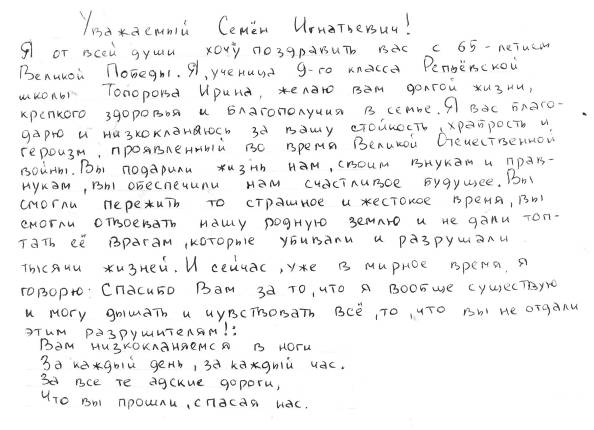 Уважаемый Семён Игнатьевич!
Я от всей души хочу поздравить вас с 65-летием
Великой Победы. Я, ученица 9-го класса Репьёвской
школы Топорова Ирина, желаю вам долгой жизни,
крепкого здоровья и благополучия в семье. Я вас благо-
дарю и низкокланяюсь за вашу стойкость, храбрость и
героизм, проявленный во время Великой Отечественной
войны. Вы подарили жизнь нам, своим внукам и прав-
нукам, вы обеспечили нам счастливое будущее. Вы
смогли пережить то страшное и жестокое время, вы
смогли отвоевать нашу родную землю и не дали топ-
тать её врагам, которые убивали и разрушали
тысячи жизней. И сейчас, уже в мирное время, я
говорю: Спасибо Вам за то, что я вообще существую
и могу дышать и чувствовать всё, то, что вы не отдали
этим разрушителям!:
Вам низкокланяемся в ноги
За каждый день, за каждый час.
За все те адские дороги,
Что вы прошли, спасая нас.